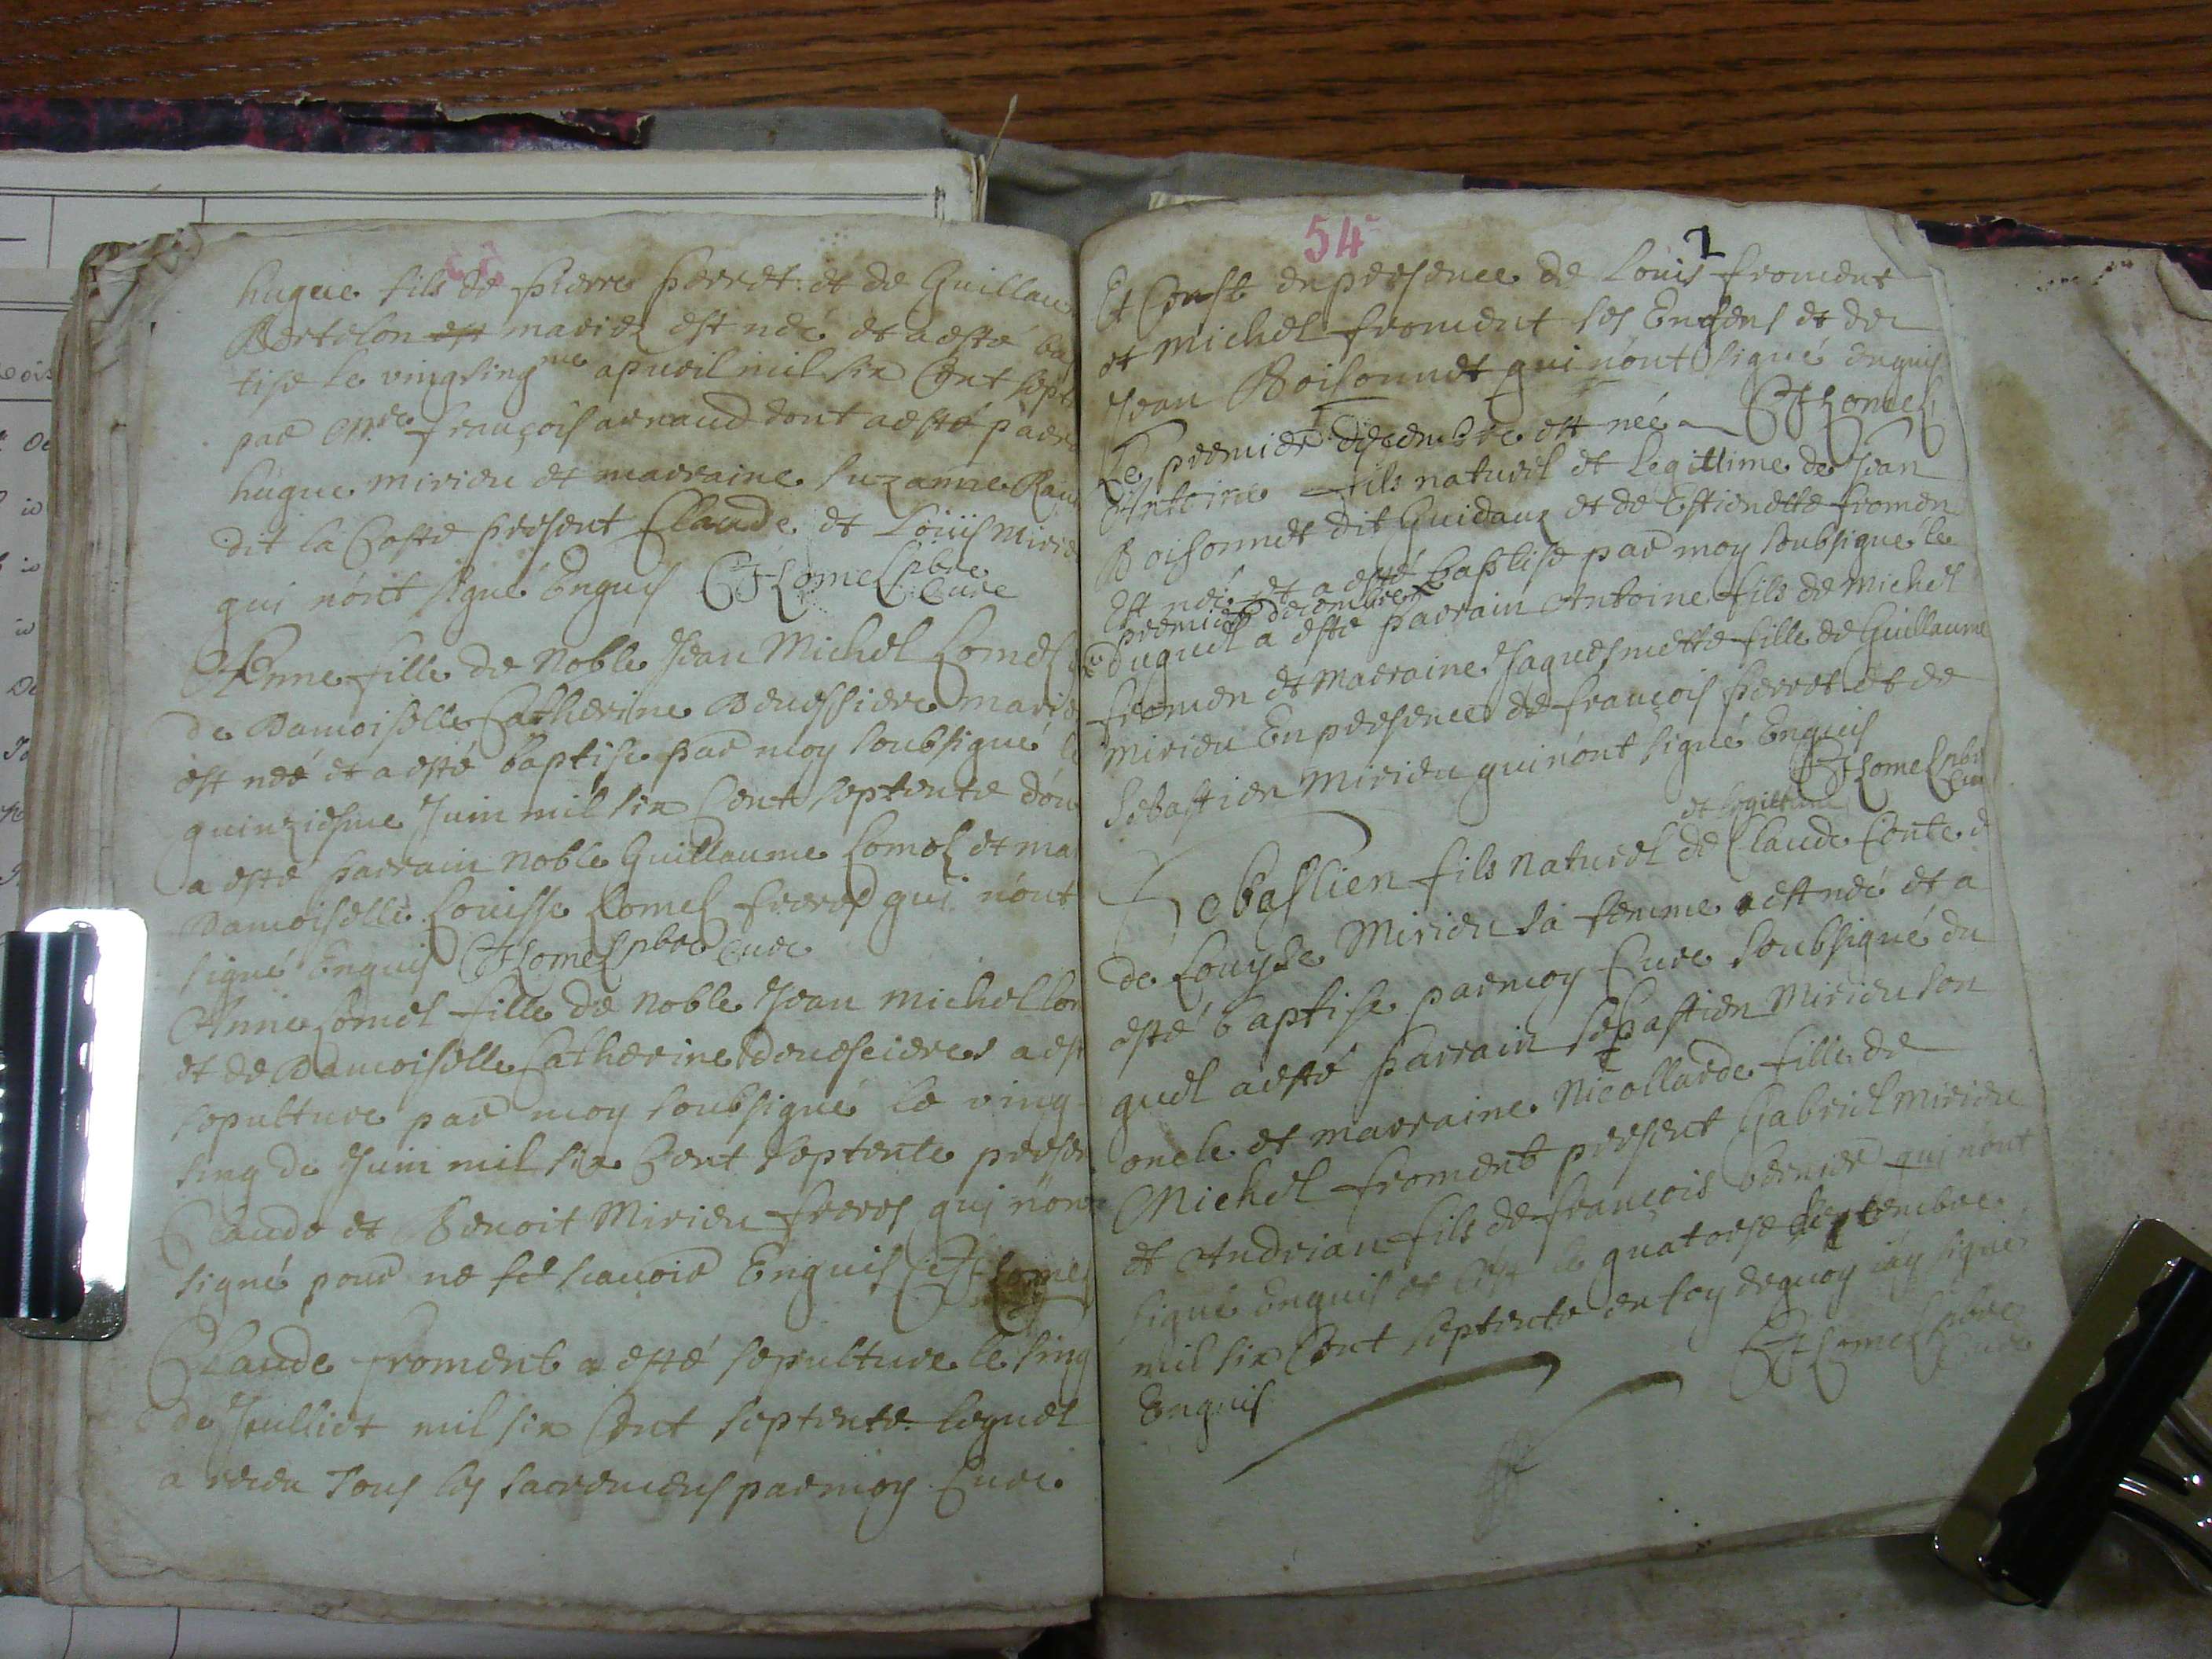 hugue fils de pierre perret et de Guillau
Bertelon est mariez est néé et a esté bap
tise le vingsing me apuril mil six Cent sept
par Mre françois arnaud dont a esté parr
hugue mirieu et marraine Suzanne Rau
dit la Coste present Claude et Loüis Mirie
qui nont signé Enquis Lomel pbre
Cure
Anne fille de Noble Jean Michel Lomel
de Damoiselle Catherine Benessiere marie
est néé et a esté baptise par moy soubsigné le
quinziesme Juin mil six Cent septente dont
a esté parrain noble Guillaume Lomel et ma
Damoiselle Louisse Lomel freres qui nont
signé Enquis Lomel pbre Cure
Anne Lomel fille de noble Jean michel lom
et de Damoiselle Catherine a est
sepulture par moy soubsigné le ving
sing de Juin mil six Cent septente presen
Claude et Benoit Mirieu freres qui n'ont
signé pour ne scauoir Enquis Lomel
Claude froment a esté sepulture le sing
de Juilliet mil six Cent septente lequel
a receu Tous les sacremens par moy Cure
54
2
Et Const en presence de Louis froment
et michel froment ses Enfens et de
Jean Boisonnet qui nont signé Enquis
Le premier decembre est néé Lomel
Antoine fils naturel et Legittime de Jean
Boisonnet dit Guidaux et de Estienette fromen
Est néé et a esté baptise par moy soubsigné le
premier decembre
Duquel a esté parrain Antoine fils de michel
fromen et marraine Jaquesmette fille de Guillaume
mirieu En presence de françois perret et de
Sebastien Mirieu qui nont signé Enquis
Lomel pbre
Cure
et legittime
Sebastien fils naturel de Claude Conte
de Louyse Mirieu sa femme est néé et a
esté baptise par moy Cure soubsigné du
quel a esté parrain sebastien Mirieu son
oncle et marraine Nicollarde fille de
Michel froment present Gabriel mirieu
et Andrian fils de françois bernier qui nont
signé Enquis et Cest le quatorse septembre
mil six Cent septente en foy dequoy iay signé
Enquis Lomel pbre
Cure